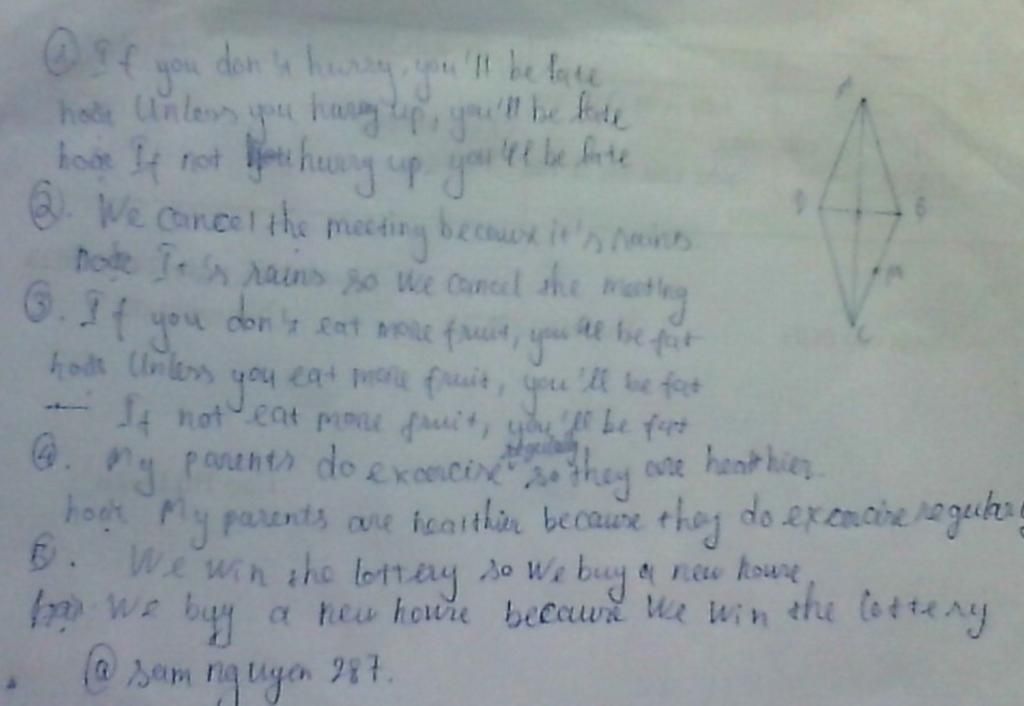 ① If you don't hurry, you'll be late
hoặc Unless you hurry up, you'll be late
hoặc If not you hurry up you'll be late
②. We cancel the meeting because it's rains
hoặc It's rains so we cancel the meeting
③. If you don't eat more fruit, you'll be fat
hoặc Unless you eat more fruit, you'll be fat
If not eat more fruit, you'll be fat
④. My parents do excercise regularly so they are healthier.
hoặc My parents are healthier because they do excercise regularly
5. We win the lottery so we buy a new house
We buy a new house because we win the lottery
@ sam nguyen 287.
A
D B
M
C